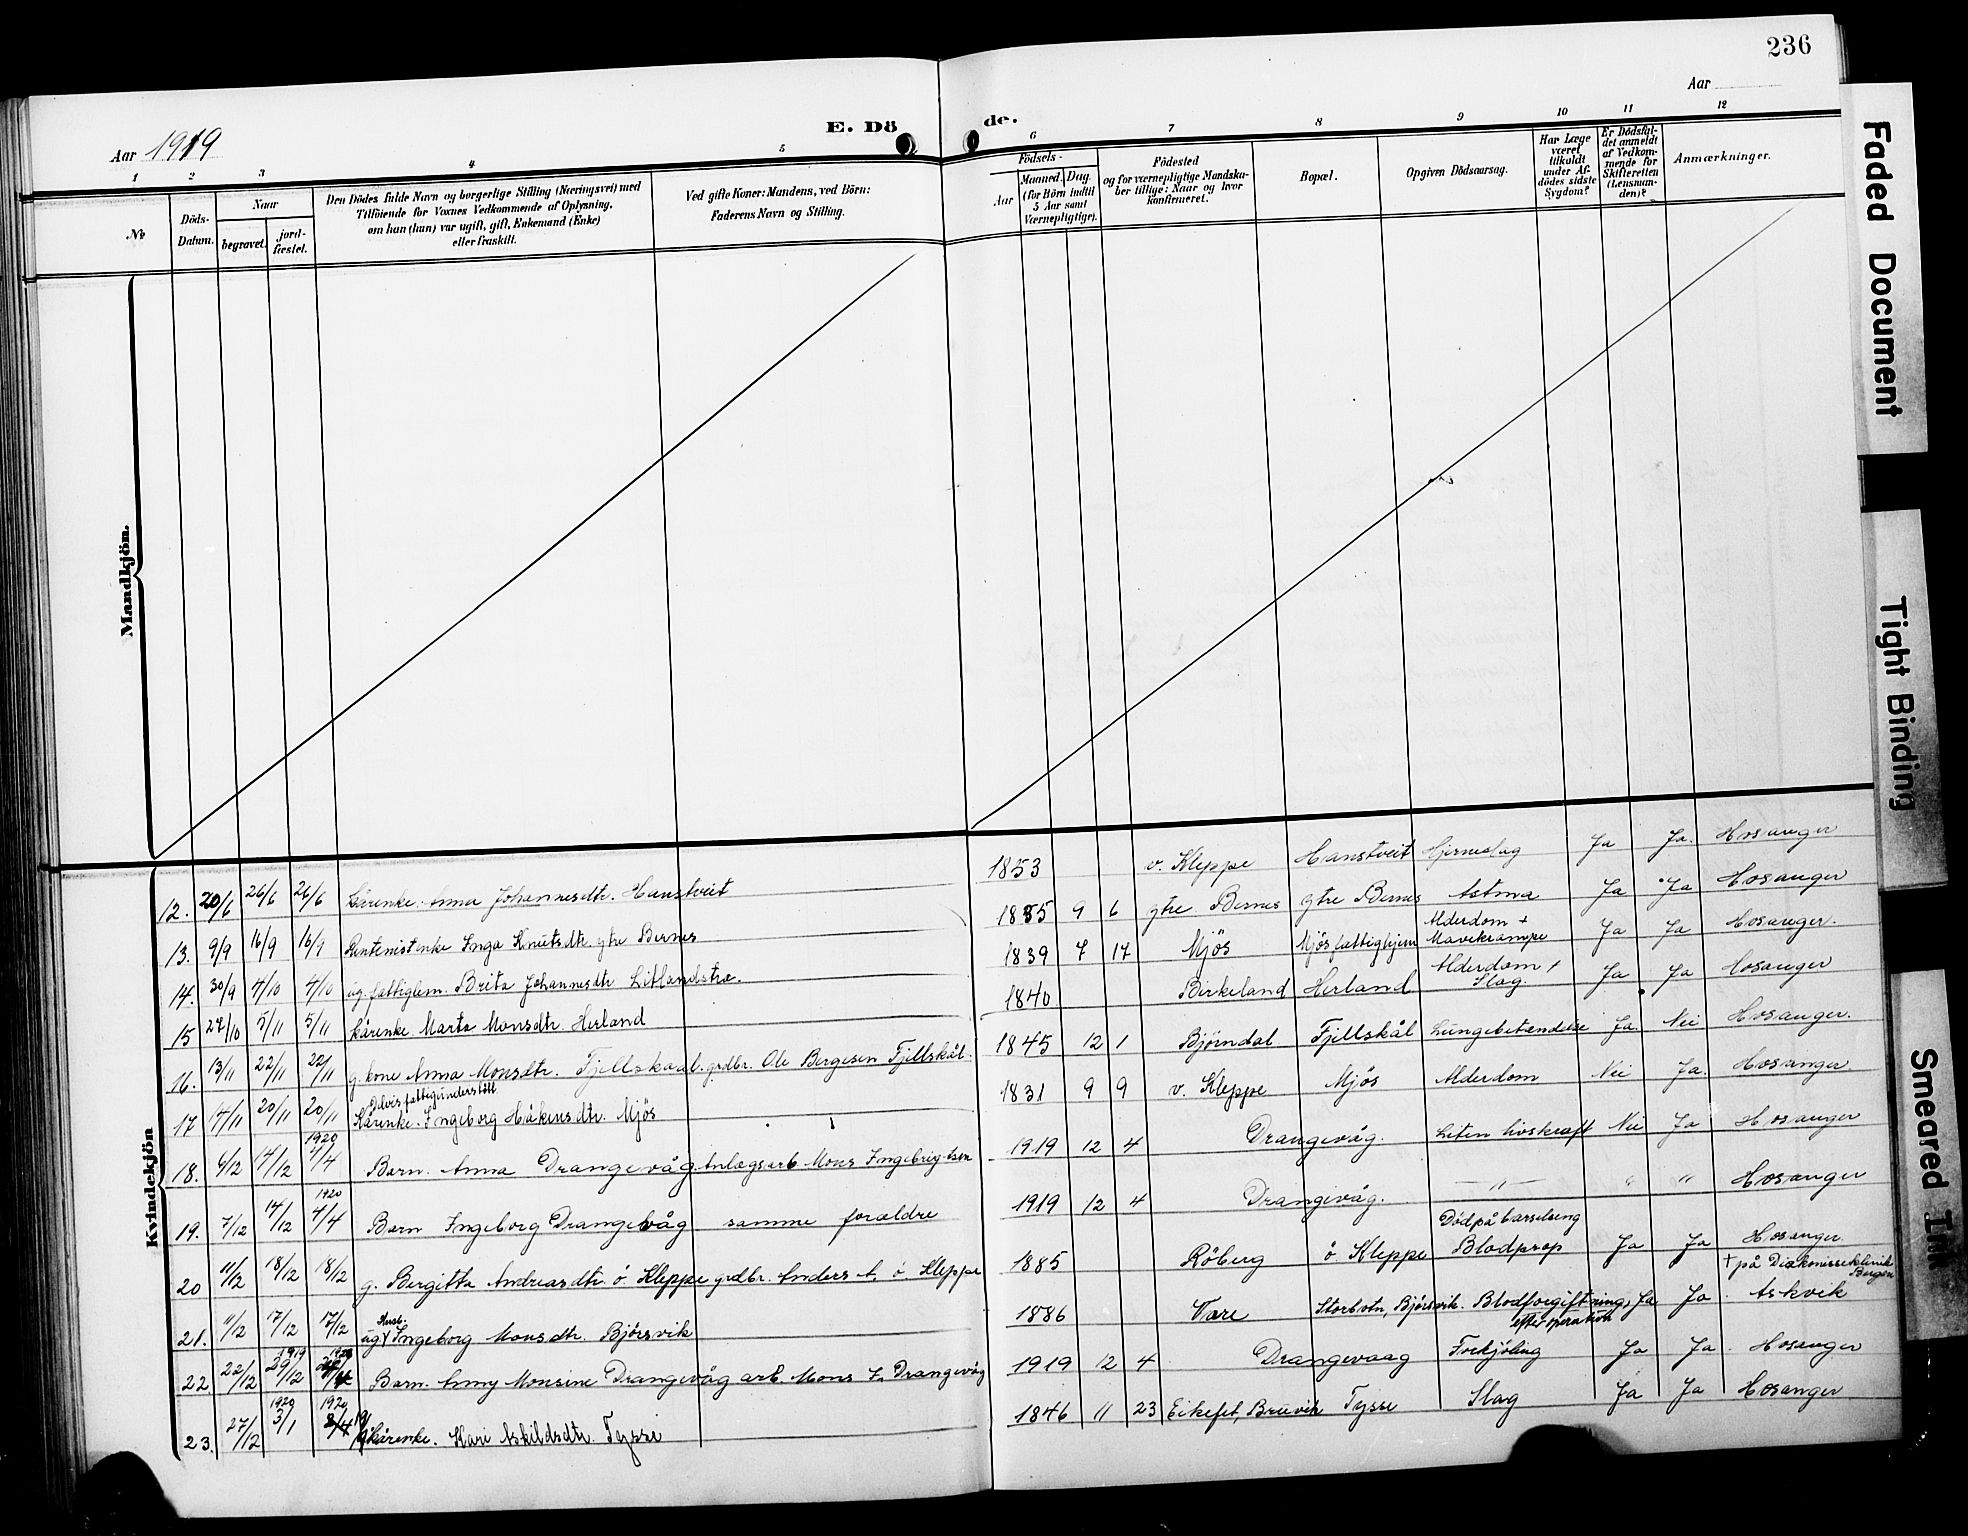 236
Aar 1919
E. Döde.
Aar
1 2 3 4 5 6 7 8 9 10 11 12
№
Döds-Datum.
Naar
begravet.
jord-fæstet.
Den Dödes fulde Navn og borgerlige Stilling (Næringsvei) med
Tilföiende for Voxnes Vedkommende af Oplysning,
om han (hun) var ugift, gift, Enkemand (Enke)
eller fraskilt.
Ved gifte Koner: Mandens, ved Börn:
Faderens Navn og Stilling.
Födsels-
Aar
Maaned. Dag.
(for Börn indtil
5 Aar samt
Værnepligtige).
Födested
og for værnepligtige Mandska-
ber tillige: Naar og hvor
konfirmeret.
Bopæl.
Opgiven Dödsaarsag.
Har Læge
været
tilkaldt
under Af-
dödes sidste
Sygdom?
Er Dödsfal-
det anmeldt
af Vedkom-
mende for
Skifteretten
(Lensman-
den)?
Anmærkninger.
Mandkjön.
Kvindekjön
12. 20/6 26/6 26/6 Kårenke. Anna Johannesdtr. Hanstveit 1853 v. Kleppe Hanstveit Hjerneslag Ja Ja. Hosanger
13. 9/9 16/9 16/9 Rentenistenke Inga Knutsdtr ytre Bernes 1835 9 6 ytre Bernes ytre Bernes Astma Ja Ja Hosanger
14. 30/9 4/10 4/10 ug. fattiglem. Brita Johannesdtr Litlandstræ. 1839 7 17 Mjös Mjös fattighjem Alderdom + Mavekrampe Ja Ja Hosanger.
15 27/10 5/11 5/11 Kårenke. Marta Monsdtr. Herland 1840 Birkeland Herland Alderdom + Slag. Ja Ja Hosanger
16. 13/11 22/11 22/11 g. kone Anna Monsdtr. Fjellskaal. grdbr. Ole Bergesen Fjellskål. 1845 12 1 Björndal Fjellskål Lungebetendelse Ja Nei Hosanger.
17 14/11 20/11 20/11 Delvis fattigunderstött Kårenke. Ingeborg Håkensdtr. Mjös 1831 9 9 v. Kleppe Mjös Alderdom Nei Ja. Hosanger
18. 6/12 14/12 1920 4/4 Barn. Anna Drangevåg Anlægsarb Mons Ingebrigtsen 1919 12 4 Drangevåg. Liten livskraft Nei Ja Hosanger
19. 7/12 14/12 1920 4/4 Barn Ingeborg Drangevåg samme forældre 1919 12 4 Drangevåg. — " — " " Hosanger
20 11/12 18/12 18/12 g. Bergitta Andreasdtr. ö. Kleppe grdbr. Anders A. ö Kleppe 1885 Röberg ö. Kleppe Död på barselseng Blodprop Ja Ja Hosanger
21. 11/12 17/12 17/12 ug. Ingeborg Monsdtr. Björsvik 1886 Vare Storbotn, Björsvik. Blodforgiftning, efter operation Ja Ja + på Diakonisseklinik Bergen Askvik
22 22/12 1919 29/12 1920 Barn. Anny Monsine Drangevåg arb. Mons I. Drangevåg 1919 12 4 Drangevaag Forkjöling Ja Ja Hosanger
23. 27/12 1920 3/1 1920 Kårenke. Kari Askildsdtr. Tysse 1846 11 23 Eikefet, Bruvik Tysse Slag Ja Ja Hosanger
Faded Document
Tight Binding
Smeared Ink